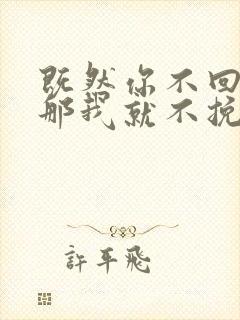 既然你不回
那我就不挽
許平飛